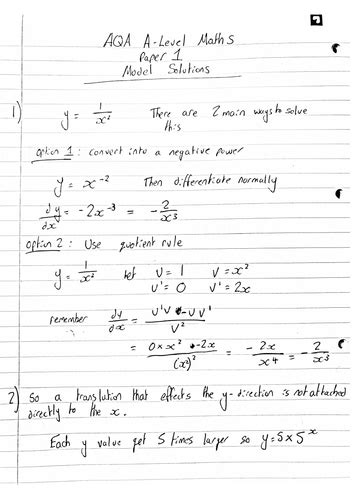 AQA A-Level Maths
Paper 1
Model Solutions
1) y = 1/x² There are 2 main ways to solve
this
Option 1: Convert into a negative power
y = x⁻² Then differentiate normally
dy/dx = -2x⁻³ = -2/x³
Option 2: Use quotient rule
y = 1/x² let U = 1 V = x²
U' = 0 V' = 2x
remember dy/dx = (U'V - UV')/V²
= (0 × x² - 2x)/(x²)² = -2x/x⁴ = -2/x³
2) So a translution that effects the y-direction is not attached
directly to the x.
Each y value get 5 times larger so y = 5 × 5ˣ